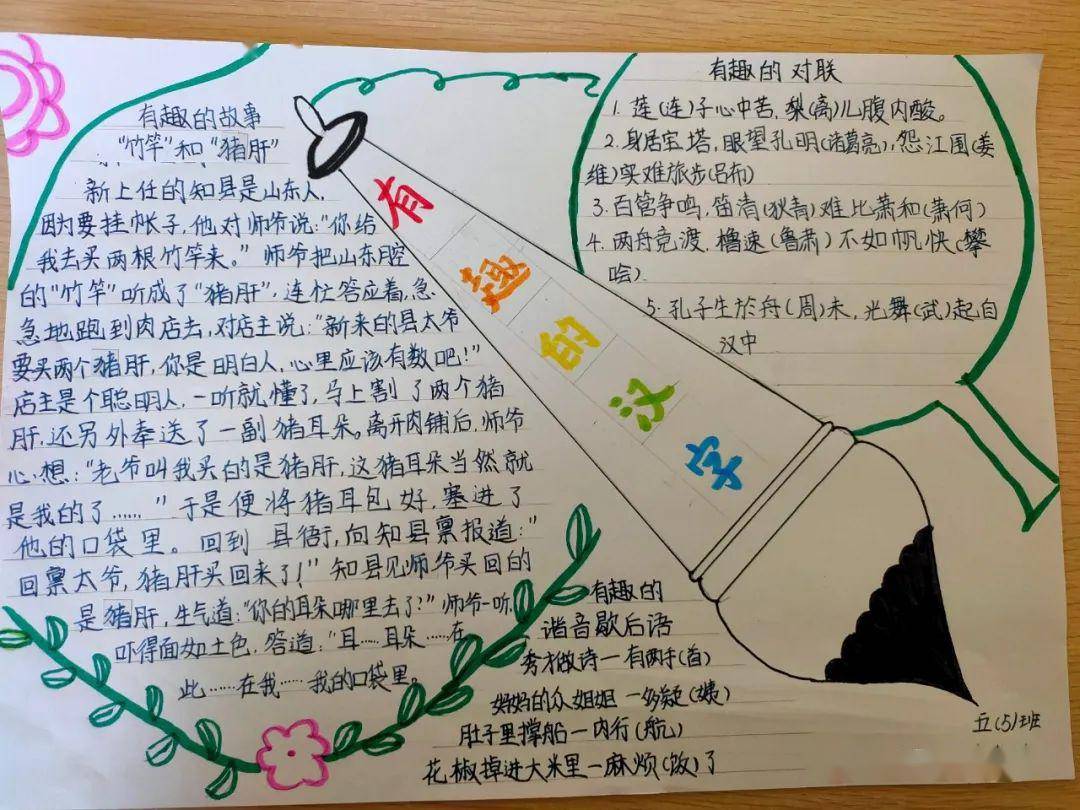 有趣的故事
"竹竿"和"猪肝"
新上任的知县是山东人,
因为要挂帐子,他对师爷说:"你给
我去买两根竹竿来。"师爷把山东腔
的"竹竿"听成了"猪肝",连忙答应着,急
急地跑到肉店去,对店主说:"新来的县太爷
要买两个猪肝,你是明白人,心里应该有数吧!"
店主是个聪明人,一听就懂了,马上割了两个猪
肝,还另外奉送了一副猪耳朵。离开肉铺后,师爷
心想:"老爷叫我买的是猪肝,这猪耳朵当然就
是我的了……"于是便将猪耳包好,塞进了
他的口袋里。回到县衙,向知县禀报道:"
回禀太爷,猪肝买回来了!"知县见师爷买回的
是猪肝,生气道:"你的耳朵哪里去了?"师爷一听,
吓得面如土色,答道:"耳……耳朵……在
此……在我……我的口袋里。
有趣的汉字
有趣的对联
1. 莲(连)子心中苦,梨(离)儿腹内酸。
2. 身居宝塔,眼望孔明(诸葛亮),怨江围(姜
维)实难旅步(吕布)
3. 百管争鸣,笛清(狄青)难比萧和(萧何)
4. 两舟竞渡,橹速(鲁肃)不如帆快(樊
哙).
5. 孔子生於舟(周)末,光舞(武)起自
汉中
有趣的
谐音歇后语
秀才做诗一有两手(首)
妈妈的众姐姐一多疑(姨)
肚子里撑船一内行(航)
花椒掉进大米里一麻烦(饭)了
五(5)班